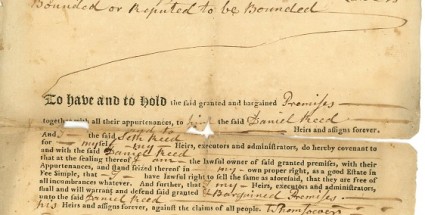 Bounded or Reputed to be Bounded
To have and to Hold the said granted and bargained Premises
together with all their appurtenances, to him the said Daniel Reed
Heirs and assigns forever.
And I the said Seth Reed
for myself my Heirs, executors and administrators, do hereby covenant to
and with the said Daniel Reed
that at the sealing thereof I am the lawful owner of said granted premises, with their
Appurtenances, and seized thereof in my own proper right, as a good Estate in
Fee Simple, that I have lawful right to sell the same as aforesaid, that they are free of
all incumbrances whatever. And further, that I my Heirs, executors and administrators,
shall and will warrant and defend said granted & Bargained Premises
unto the said Daniel Reed
his Heirs and assigns forever, against the claims of all people.